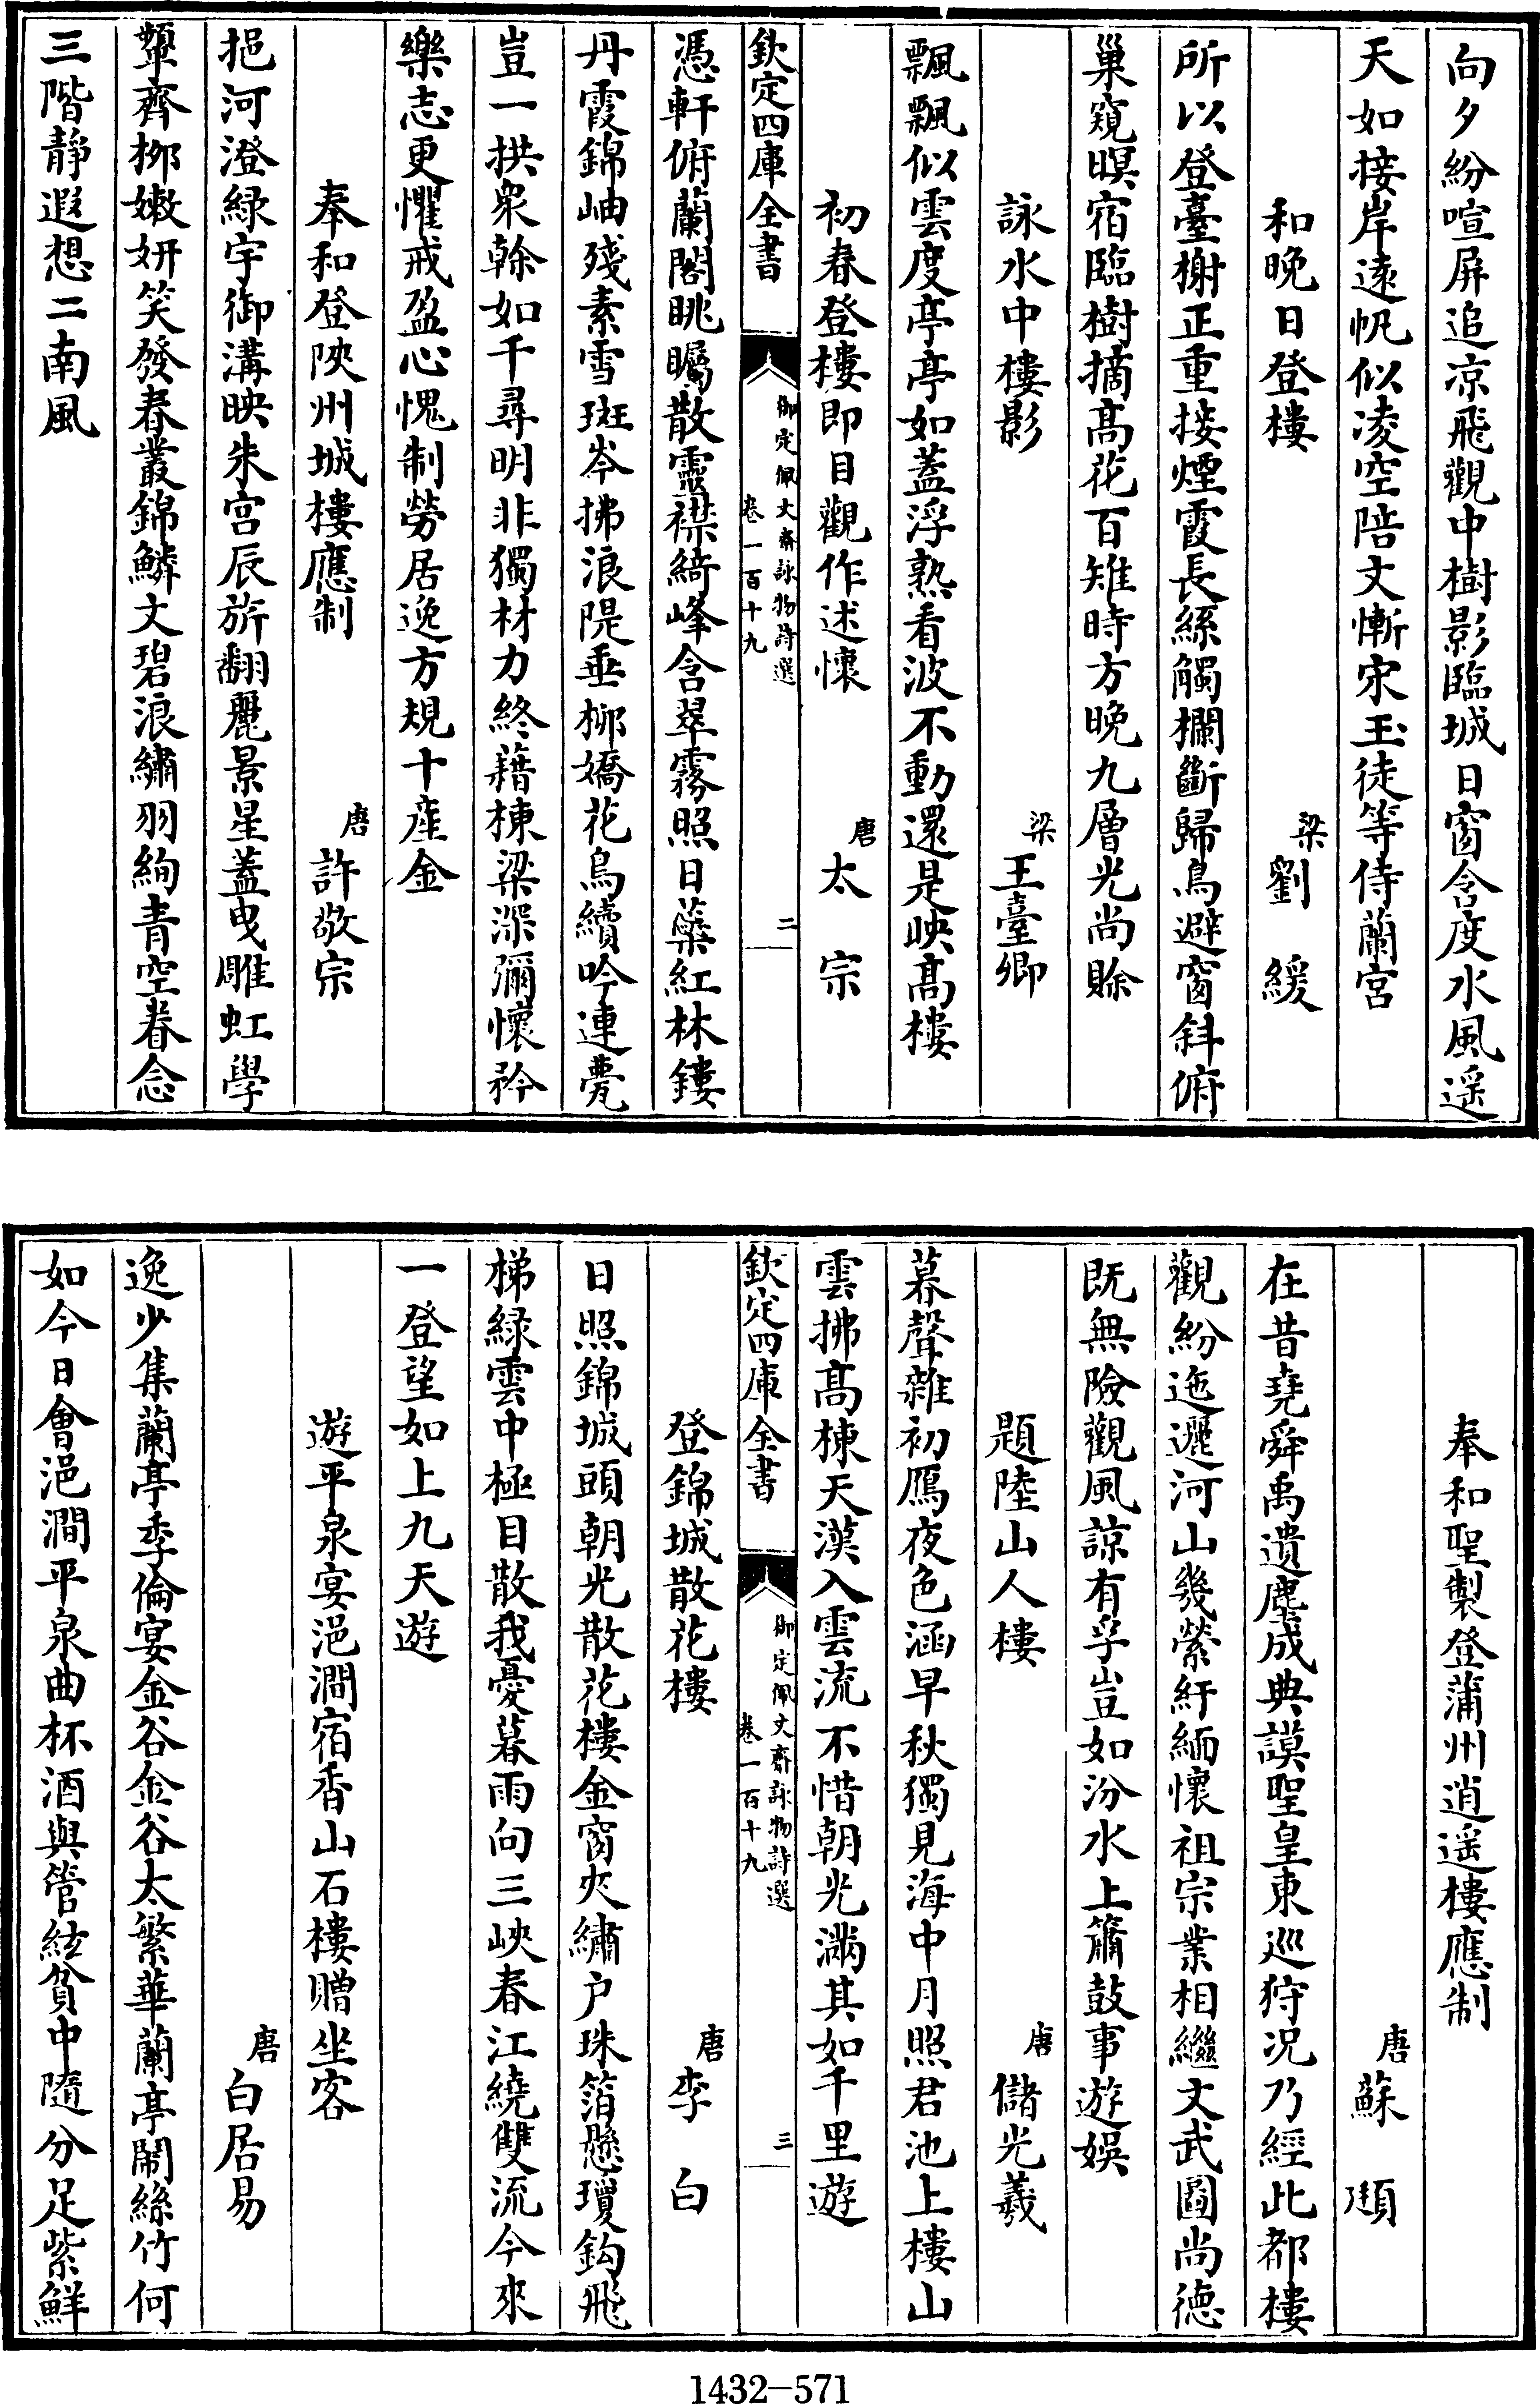 向夕紛喧屏追凉飛觀中樹影臨城日窗含度水風遥
天如接岸遠帆似凌空陪文慚宋玉徒等侍蘭宮
和晚日登樓 梁劉緩
所以登臺榭正重接煙霞長絲觸欄斷歸鳥避窗斜俯
巢窺暝宿臨樹摘髙花百雉時方晚九層光尚賖
詠水中樓影 梁王臺卿
飄飄似雲度亭亭如蓋浮熟看波不動還是映髙樓
初春登樓即目觀作述懷 唐太宗
欽定四庫全書 御定佩文齋詠物詩選 卷一百十九 二
憑軒俯蘭閣眺矚散靈襟綺峰含翠霧照日蘂紅林鏤
丹霞錦岫殘素雪斑岑拂浪隄垂柳嬌花鳥續吟連甍
豈一拱衆幹如千尋明非獨材力終藉棟梁深彌懷矜
樂志更懼戒盈心愧制勞居逸方規十産金
奉和登陜州城樓應制 唐許敬宗
挹河澄綠宇御溝映朱宮辰旂翻麗景星蓋曳雕虹學
顰齊柳嫩妍笑發春叢錦鱗文碧浪繡羽絢青空眷念
三階靜遐想二南風
奉和聖製登蒲州逍遥樓應制
唐蘇頲
在昔堯舜禹遺塵成典謨聖皇東巡狩况乃經此都樓
觀紛迤邐河山幾縈紆緬懷祖宗業相繼文武圖尚德
既無險觀風諒有孚豈如汾水上簫鼓事遊娛
題陸山人樓 唐儲光羲
暮聲雜初鴈夜色涵早秋獨見海中月照君池上樓山
雲拂髙棟天漢入雲流不惜朝光滿其如千里遊
欽定四庫全書 御定佩文齋詠物詩選 卷一百十九 三
登錦城散花樓 唐李白
日照錦城頭朝光散花樓金窗夾繡户珠箔懸瓊鈎飛
梯綠雲中極目散我憂暮雨向三峽春江繞雙流今來
一登望如上九天遊
遊平泉宴浥澗宿香山石樓贈坐客
唐白居易
逸少集蘭亭季倫宴金谷金谷太繁華蘭亭闕絲竹何
如今日會浥澗平泉曲杯酒與管絃貧中隨分足紫鮮
1432-571